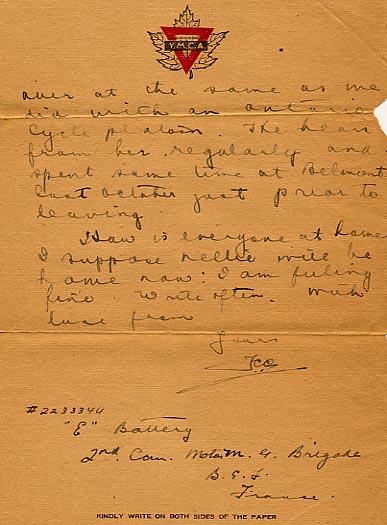 Y.M.C.A.
over at the same as we
did with an Ontario
Cycle platoon. He hears
from her regularly and
spent some time at Belmont
last October just prior to
leaving.
How is everyone at home
I suppose Nellie will be
home now: I am feeling
fine. Write often. With
love from
Yours
#2233344
"E" Battery
2nd. Can. Motor M. G. Brigade
B.E.F.
France.
KINDLY WRITE ON BOTH SIDES OF THE PAPER